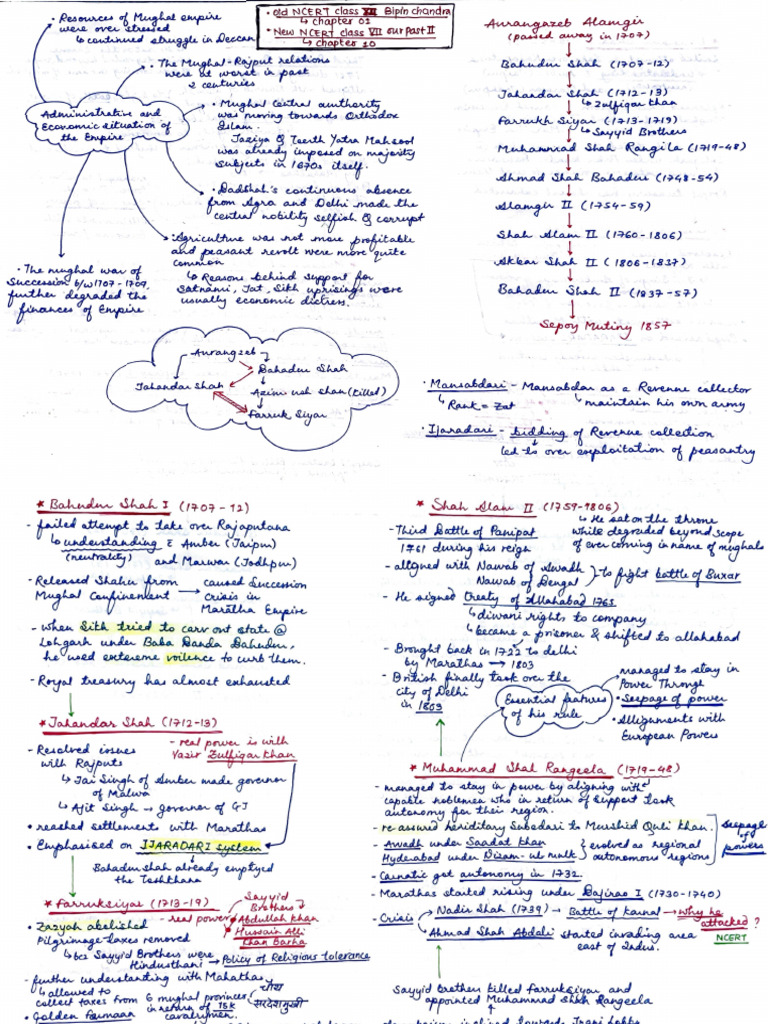 • Old NCERT class XII Bipin chandra
↳ chapter 01
• New NCERT class VII our past II
↳ chapter 10
• Resources of Mughal empire
were over stressed
↳ continued struggle in Deccan
• The Mughal-Rajput relations
were at worst in past
2 centuries
Administrative and
Economic situation of
the Empire
• Mughal Central authority
was moving towards Orthodox
Islam.
Jaziya & Teerth Yatra Mahsool
was already imposed on majority
subjects in 1670s itself.
• Badshah's continuous absence
from Agra and Delhi made the
central nobility selfish & corrupt
• Agriculture was not more profitable
and peasant revolt were more quite
common
↳ Reasons behind support for
Satnami, Jat, Sikh uprisings were
usually economic distress.
• The mughal war of
Succession b/w 1707-1709,
further degraded the
finances of Empire
Aurangzeb Alamgir
(passed away in 1707)
Bahadur Shah (1707-12)
Jahandar Shah (1712-13)
↳ Zulfiqar khan
Farrukh Siyar (1713-1719)
↳ Sayyid Brothers
Muhammad Shah Rangila (1719-48)
Ahmad Shah Bahadur (1748-54)
Alamgir II (1754-59)
Shah Alam II (1760-1806)
Akbar Shah II (1806-1837)
Bahadur Shah II (1837-57)
Sepoy Mutiny 1857
Aurangzeb
Bahadur Shah
Jahandar Shah
Azim ush Shan (killed)
Farruk Siyar
• Mansabdari - Mansabdar as a Revenue collector
↳ Rank = Zat
↳ maintain his own army
• Ijaradari - bidding of Revenue collection
led to over exploitation of peasantry
* Bahadur Shah I (1707-12)
- failed attempt to take over Rajaputana
↳ understanding c Amber (Jaipur)
(neutrality) and Marwar (Jodhpur)
- Released Shahu from
Mughal Confinement → caused Succession
crisis in
Maratha Empire
- when Sikh tried to carv out state @
Lohgarh under Baba Banda Bahadur,
he used extreme voilence to curb them.
- Royal treasury has almost exhausted
* Jahandar Shah (1712-13)
- real power is with
Vazir Zulfiqar Khan
- Resolved issues
with Rajputs
↳ Jai Singh of Amber made governor
of Malwa
↳ Ajit Singh → governor of GJ
• reached settlement with Marathas
• Emphasised on IJARADARI system
Bahadurshah already emptyed
the Toshkhana
* Farruksiyar (1713-19)
- real power
Sayyid
Brothers
Abdullah Khan
Hussain Alli
Khan Barha
• Zazyah abolished
Pilgrimage taxes removed
↳ bcs Sayyid Brothers were
Hindusthani → Policy of Religious tolerance
- further understanding with Mahathas
↳ allowed to
collect taxes from 6 mughal provinces
in return of 15k
cavalrymen.
चौथ
सरदेशमुखी
• Golden Farmaan
* Shah Alam II (1759-1806)
↳ He sat on the throne
while degraded beyond scope
of ever coming in name of mughals
- Third Battle of Panipat
1761 during his reign
- aligned with Nawab of Awadh
Nawab of Bengal
to fight battle of Buxar
- He signed treaty of Allahabad 1765
↳ diwani rights to company
↳ became a prisoner & shifted to allahabad
- Brought back in 1722 to delhi
by Marathas → 1803
- British finally took over the
city of Delhi
in 1803
Essential features
of his rule
managed to stay in
Power Through
• Seepage of power
• Allignments with
European Powers
* Muhammad Shah Rangeela (1719-48)
- managed to stay in power by aligning with
capable noblemen who in return of support took
autonomy for their region.
- re-assured heriditary Subedari to Murshid Quli khan.
- Awadh under Saadat khan
Hyderabad under Nizam-ul mulk
evolved as regional
autonomous regions
seepage
of
powers
- Carnatic got autonomy in 1732.
- Marathas started rising under Bajirao I (1730-1740)
- Crisis
Nadir Shah (1739) → Battle of karnal → why he
attacked?
NCERT
Ahmad Shah Abdali started invading area
east of Indus.
Sayyid brother killed farruksiyar and
appointed Muhammad Shah Rangeela